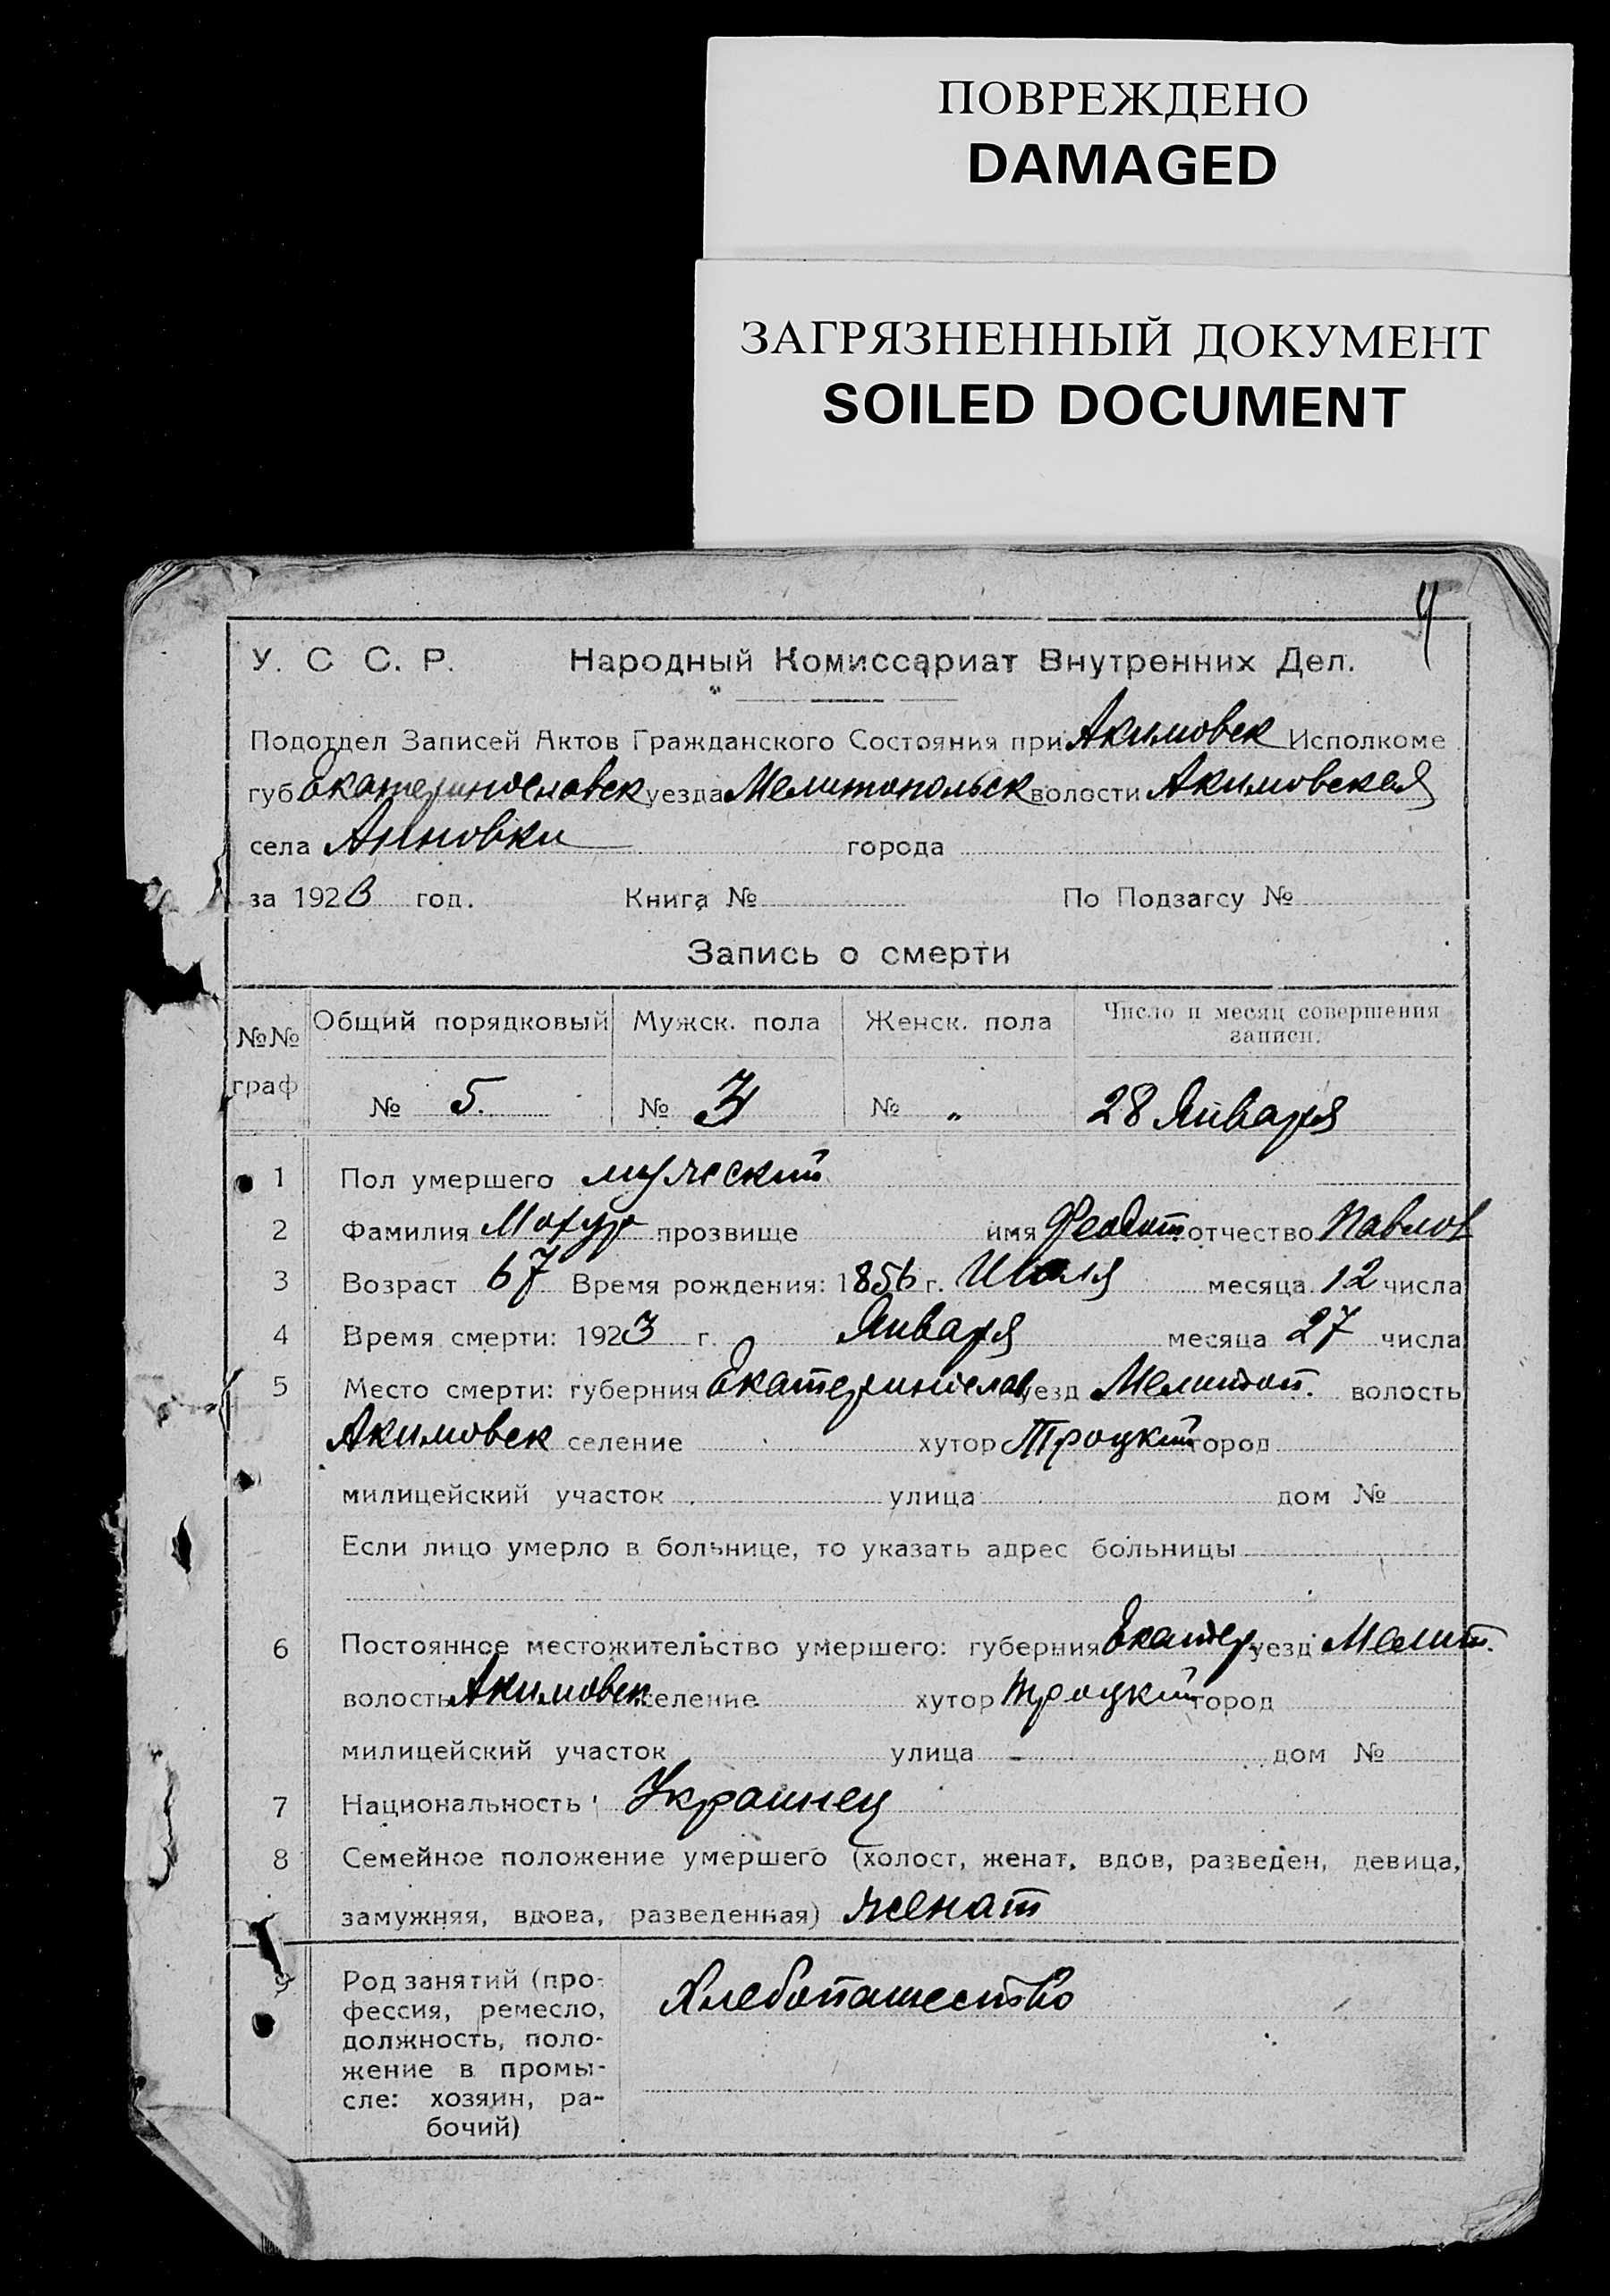 ПОВРЕЖДЕНО
DAMAGED
ЗАГРЯЗНЕННЫЙ ДОКУМЕНТ
SOILED DOCUMENT
У. С С. Р. Народный Комиссариат Внутренних Дел.
Подотдел Записей Актов Гражданского Состояния при Акимовск Исполкоме
губ Екатеринославск уезда Мелитопольск волости Акимовская
села Анновки города
за 1923 год. Книга № По Подзагсу №
Запись о смерти
№№ граф Общий порядковый Мужск. пола Женск. пола Число и месяц совершения записи.
№ 5. № 3 № „ 28 Января
1 Пол умершего мужский
2 Фамилия прозвище имя Феодот отчество Павлов
3 Возраст 67 Время рождения: 1856 г. Июля месяца 12 числа
4 Время смерти: 1923 г. Января месяца 27 числа
5 Место смерти: губерния Екатеринослав уезд Мелитоп. волость
Акимовск селение хутор Троцкий город
милицейский участок улица дом №
Если лицо умерло в больнице, то указать адрес больницы
6 Постоянное местожительство умершего: губерния Екатер. уезд Мелит.
волость Акимовск селение хутор Троцкий город
милицейский участок улица дом №
7 Национальность Украинец
8 Семейное положение умершего (холост, женат, вдов, разведен, девица,
замужняя, вдова, разведенная) женат
9 Род занятий (про- Хлебопашество
фессия, ремесло,
должность, поло-
жение в промы-
сле: хозяин, ра-
бочий)